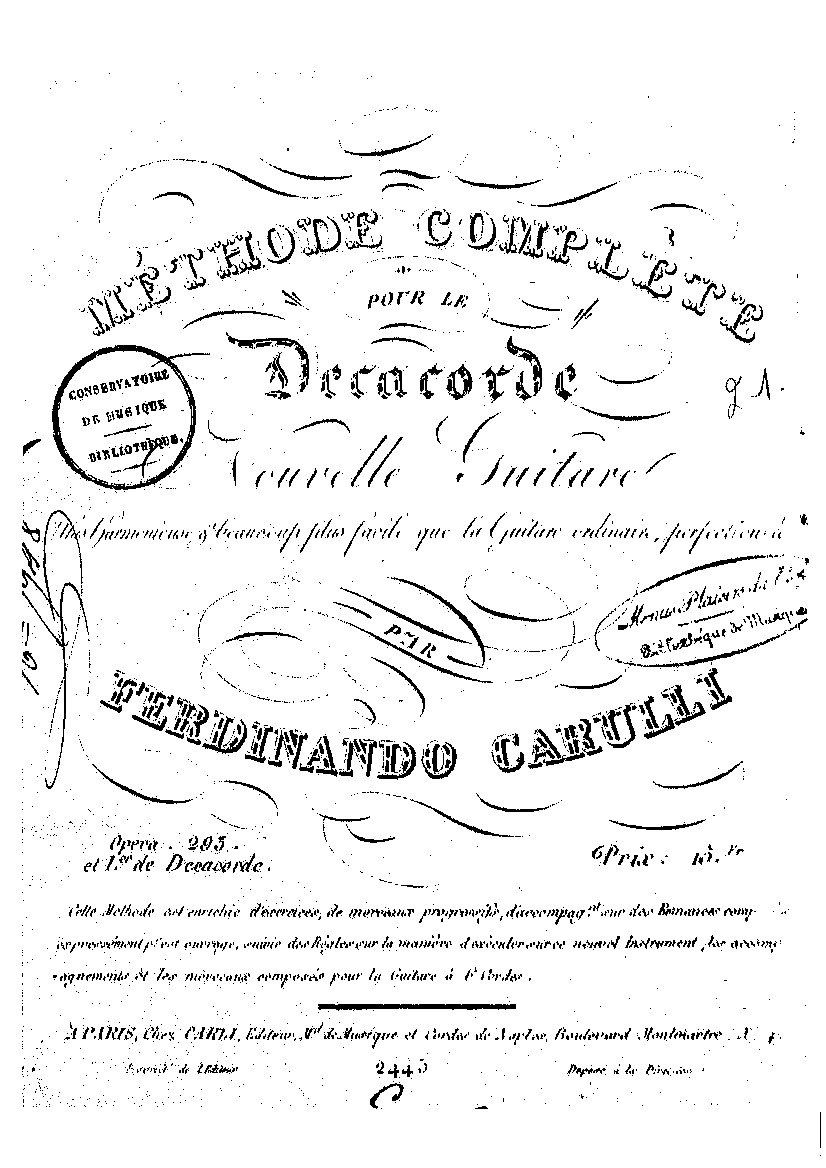 MÉTHODE COMPLÈTE
POUR LE
Decacorde
CONSERVATOIRE
DE MUSIQUE
BIBLIOTHÈQUE.
Nouvelle Guitare
Très Harmonieuse & beaucoup plus facile que la Guitare ordinaire, perfectionnée
Menus Plaisirs du
Bibliothèque de Musique
PAR
FERDINANDO CARULLI
Opera . 293 .
et 1.er de Decacorde.
Prix : 15. Fr
Cette Méthode est enrichie d'exercices, de morceaux progressifs, d'accompag.nt sur des Romances comp
expressément pr cet ouvrage, suivie des Règles sur la manière d'exécuter sur ce nouvel Instrument, les accomp
agnements et les morceaux composés pour la Guitare à 6 Cordes .
A PARIS, Chez CARLI, Editeur, Md de Musique et Cordes de Naples, Boulevard Montmartre
Propriété de l'Editeur
2443
Déposé à la Direction